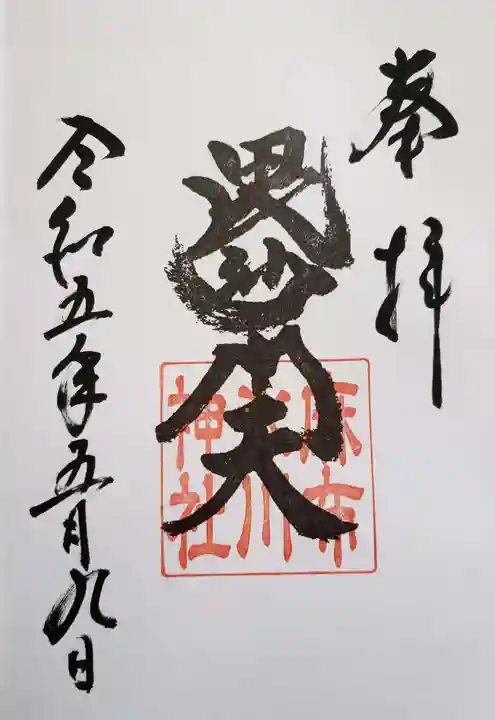 奉拝
毘沙門天
麻布
氷川
神社
令和五年五月九日